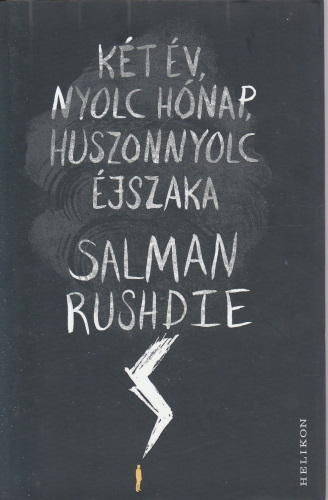 KÉT ÉV,
NYOLC HÓNAP,
HUSZONNYOLC
ÉJSZAKA
SALMAN
RUSHDIE
HELIKON